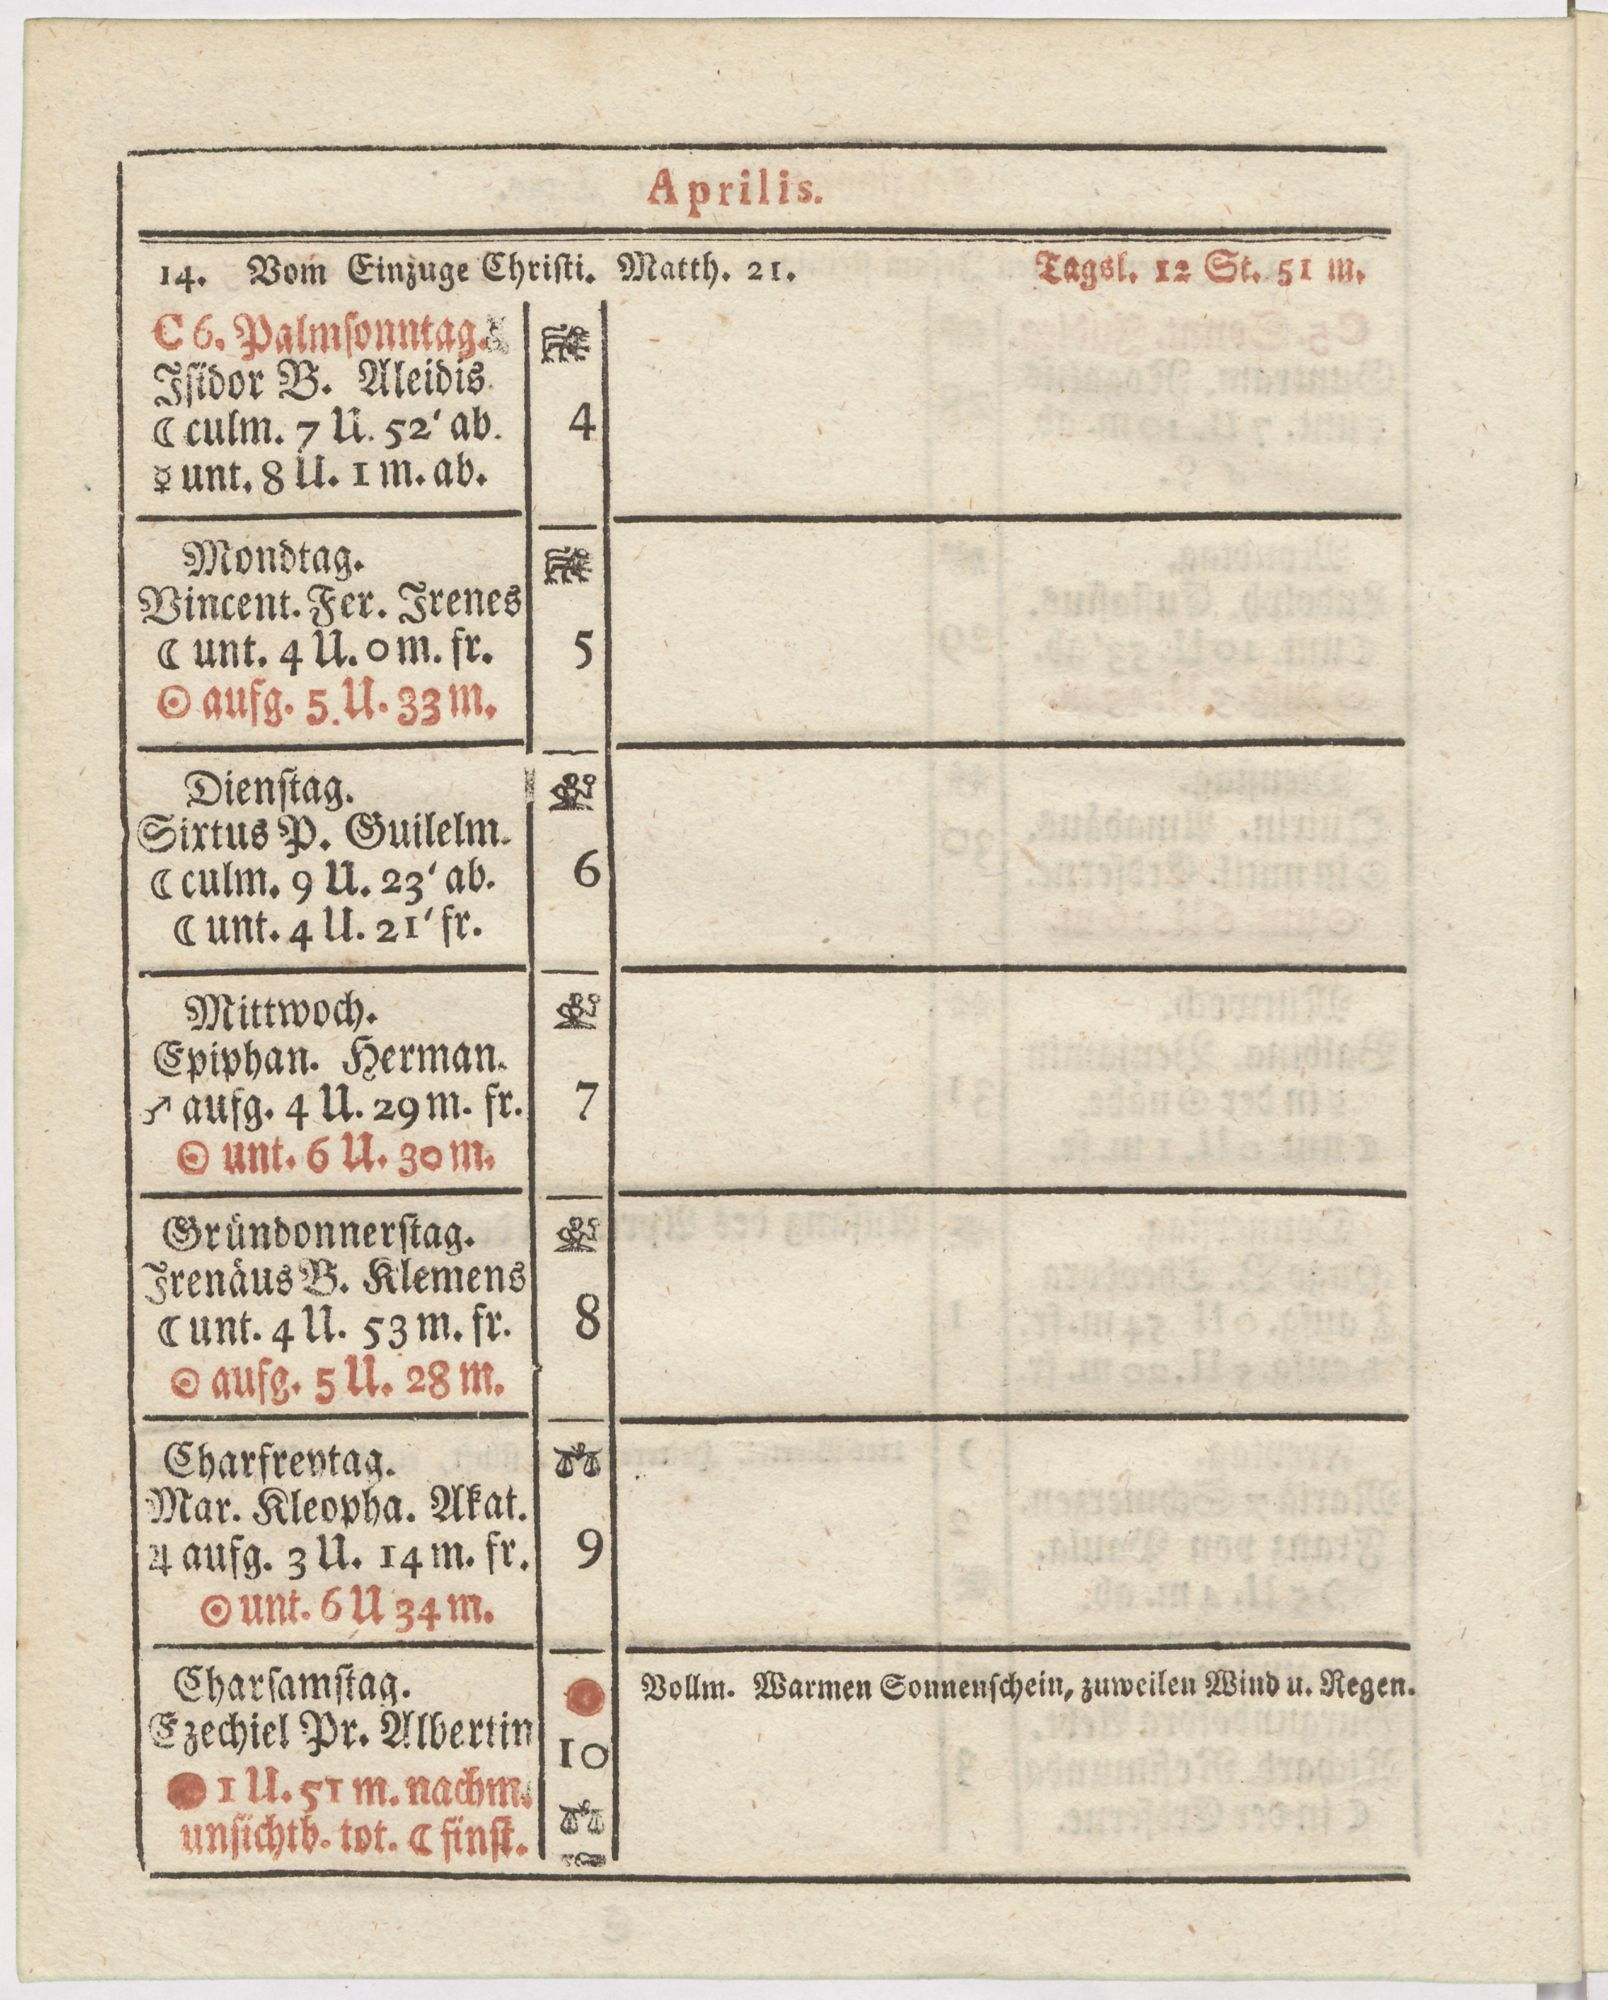 Aprilis.
14. Vom Einzuge Christi. Matth. 21. Tagsl. 12 St. 51 m.
C 6. Palmsonntag.
Isidor B. Aleidis.
☾ culm. 7 U. 52' ab.
4
☿ unt. 8 U. 1 m. ab.
Mondtag.
Vincent. Fer. Irenes
☾ unt. 4 U. 0 m. fr.
5
☉ aufg. 5. U. 33 m.
Dienstag.
Sixtus P. Guilelm.
☾ culm. 9 U. 23' ab.
6
☾ unt. 4 U. 21' fr.
Mittwoch.
Epiphan. Herman.
♂ aufg. 4 U. 29 m. fr.
7
☉ unt. 6 U. 30 m.
Gründonnerstag.
Irenäus B. Klemens
☾ unt. 4 U. 53 m. fr.
8
☉ aufg. 5 U. 28 m.
Charfreytag.
Mar. Kleopha. Akat.
♃ aufg. 3 U. 14 m. fr.
9
☉ unt. 6 U 34 m.
Charsamstag.
Vollm. Warmen Sonnenschein, zuweilen Wind u. Regen.
Ezechiel Pr. Albertin
10
● 1 U. 51 m. nachm.
unsichtb. tot. ☾ finst.